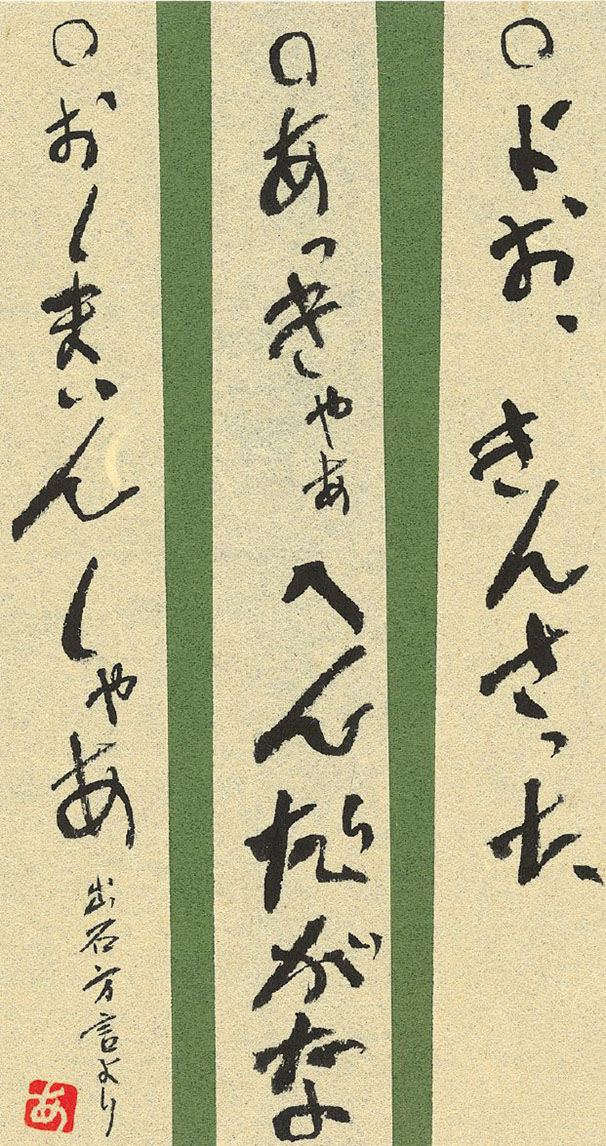 ○よお、きんさった、
○あっきゃあ へんだがな
○おくまいんしゃあ
出石方言より
あ